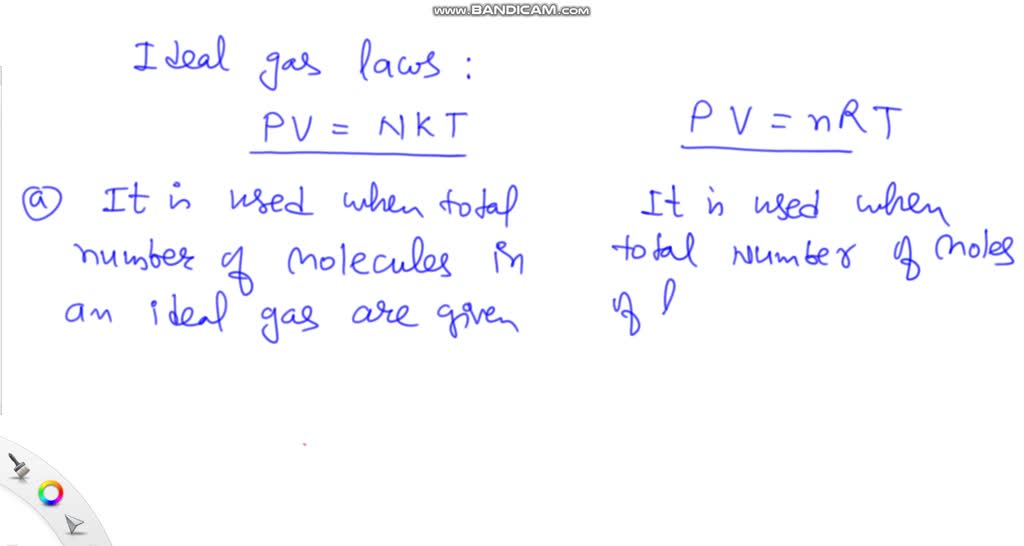 www.BANDICAM.com
Ideal gas laws :
PV = NKT
PV = nRT
(a) It is used when total
number of molecules in
an ideal gas are given
It is used when
total number of moles
of